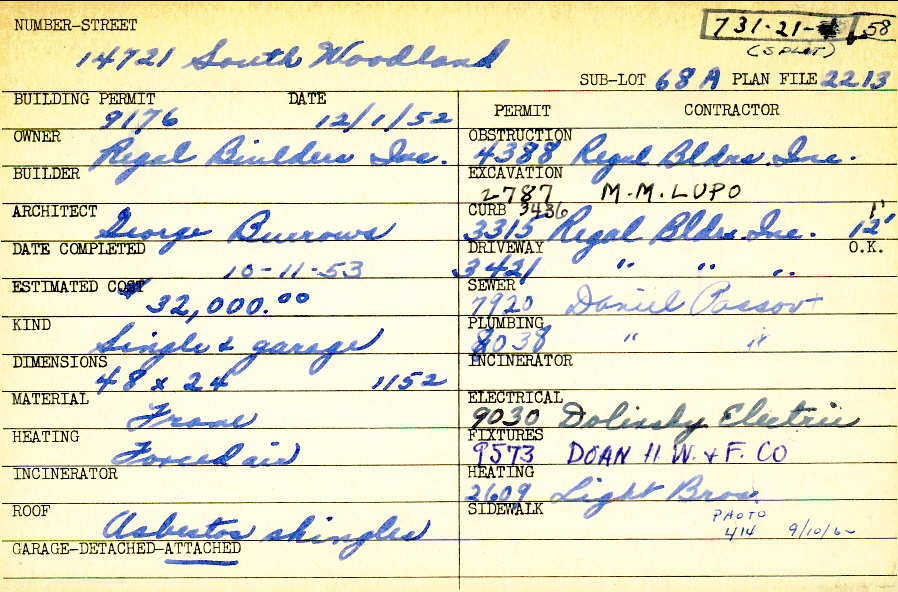 NUMBER-STREET
731-21-4 58
(SPLIT)
14721 South Woodland
SUB-LOT 68A PLAN FILE 2213
BUILDING PERMIT DATE
9176 12/1/52
PERMIT CONTRACTOR
OWNER Regal Builders Inc.
BUILDER
ARCHITECT George Burrows
DATE COMPLETED
10-11-53
ESTIMATED COST
$32,000.00
KIND Single & garage
DIMENSIONS
48 x 24 1152
MATERIAL Frame
HEATING Forced air
INCINERATOR
ROOF Asbestos shingles
GARAGE-DETACHED-ATTACHED
OBSTRUCTION
4388 Regal Bldrs. Inc.
EXCAVATION
2787 M.M. LUPO
CURB 3436 1'
3315 Regal Bldrs. Inc. 12'
DRIVEWAY O.K.
3421 " " "
SEWER
7920 Daniel Passov
PLUMBING
8038 " "
INCINERATOR
ELECTRICAL
9030 Electric
FIXTURES
9573 DOAN H.W. & F. CO
HEATING
2609 Light Bros.
SIDEWALK
PHOTO
414